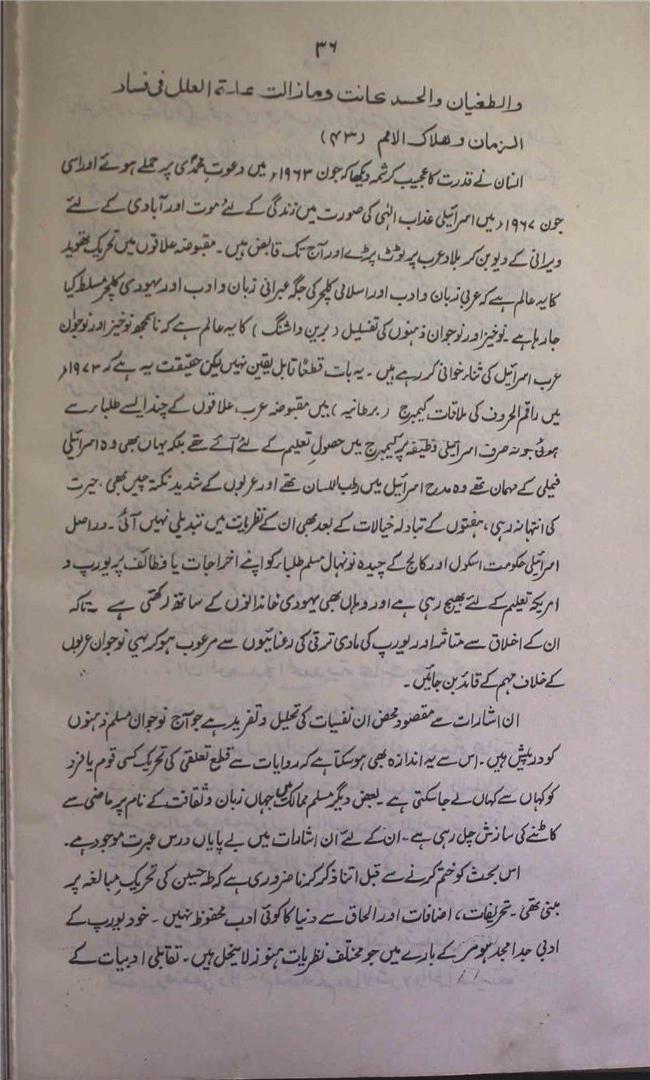 ۳۶
والطغیان والحسد کانت ومازالت علة العلل فی فساد
الزمان وهلاک الامم (۴۳)
انسان نے قدرت کا عجیب کرشمہ دیکھا کہ جون ۱۹۶۳ء میں دعوتِ محمدؐی پر حملے ہوئے اور اسی
جون ۱۹۶۷ء میں اسرائیلی عذاب الٰہی کی صورت میں زندگی کے لئے موت اور آبادی کے لئے
ویرانی کے دیو بن کر بلاد عرب پر ٹوٹ پڑے اور آج تک قابض ہیں۔ مقبوضہ علاقوں میں تحریک تہوید
کا یہ عالم ہے کہ عربی زبان و ادب اور اسلامی کلچر کی جگہ عبرانی زبان و ادب اور یہودی کلچر مسلط کیا
جارہا ہے۔ نوخیز اور نوجوان ذہنوں کی تغسیل (برین واشنگ) کا یہ عالم ہے کہ ناسمجھ نوخیز اور نوجوان
عرب اسرائیل کی ثناء خوانی کر رہے ہیں۔ یہ بات قطعاً قابل یقین نہیں لیکن حقیقت یہ ہے کہ ۱۹۷۳ء
میں راقم الحروف کی ملاقات کیمبرج (برطانیہ) میں مقبوضہ عرب علاقوں کے چند ایسے طلباء سے
ہوئی جو نہ صرف اسرائیلی وظیفہ پر کیمبرج میں حصولِ تعلیم کے لئے آئے تھے بلکہ یہاں بھی وہ اسرائیلی
فیملی کے مہمان تھے وہ مدح اسرائیل میں رطب اللسان تھے اور عربوں کے شدید نکتہ چیں بھی۔ حیرت
کی انتہا نہ رہی، ہفتوں کے تبادلہ خیالات کے بعد بھی ان کے نظریات میں تبدیلی نہیں آئی۔ دراصل
اسرائیلی حکومت اسکول اور کالج کے چیدہ نونہال مسلم طلباء کو اپنے اخراجات یا وظائف پر یورپ و
امریکہ تعلیم کے لئے بھیج رہی ہے اور وہاں بھی یہودی خاندانوں کے ساتھ رکھتی ہے۔ تاکہ
ان کے اخلاق سے متاثر اور یورپ کی مادی ترقی کی رعنائیوں سے مرعوب ہو کر یہی نوجوان عربوں
کے خلاف مہم کے قائد بن جائیں۔
ان اشارات سے مقصود محض ان نفسیات کی تحلیل و تفرید ہے جو آج نوجوان مسلم ذہنوں
کو درپیش ہیں۔ اس سے یہ اندازہ بھی ہوسکتا ہے کہ روایات سے قطع تعلقی کی تحریک کسی قوم یا فرد
کو کہاں سے کہاں لے جاسکتی ہے۔ بعض دیگر مسلم ممالک میں جہاں زبان و ثقافت کے نام پر ماضی سے
کاٹنے کی سازش چل رہی ہے۔ ان کے لئے ان اشارات میں بے پایاں درس عبرت موجود ہے۔
اس بحث کو ختم کرنے سے قبل اتنا ذکر کرنا ضروری ہے کہ طہ حسین کی تحریک مبالغہ پر
مبنی تھی۔ تحریفات، اضافات اور الحاق سے دنیا کا کوئی ادب محفوظ نہیں۔ خود یورپ کے
ادبی جد امجد ہومر کے بارے میں جو مختلف نظریات ہنوز لاینحل ہیں۔ تقابلی ادبیات کے